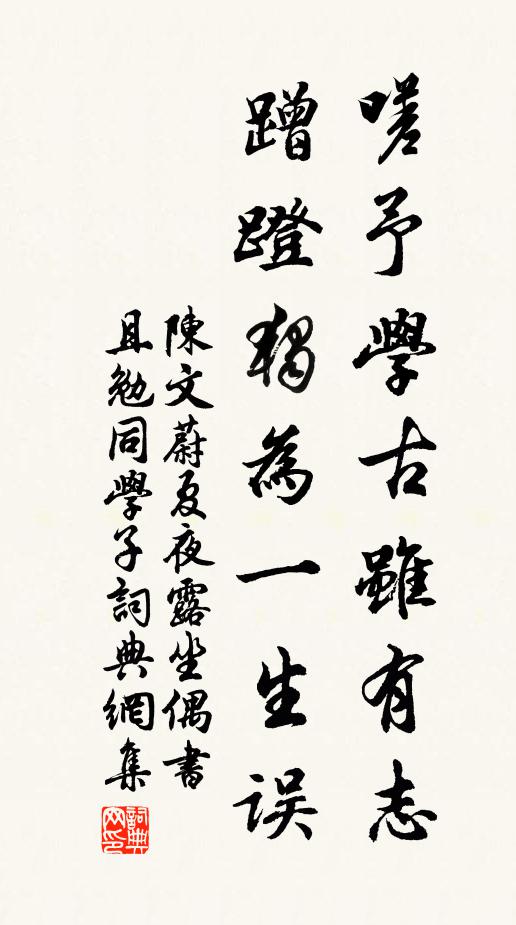 嗟予學古雖有志
蹭蹬獨為一生誤
陳文蔚夏夜露坐偶書
且勉同學子詞典網集
詞典网印